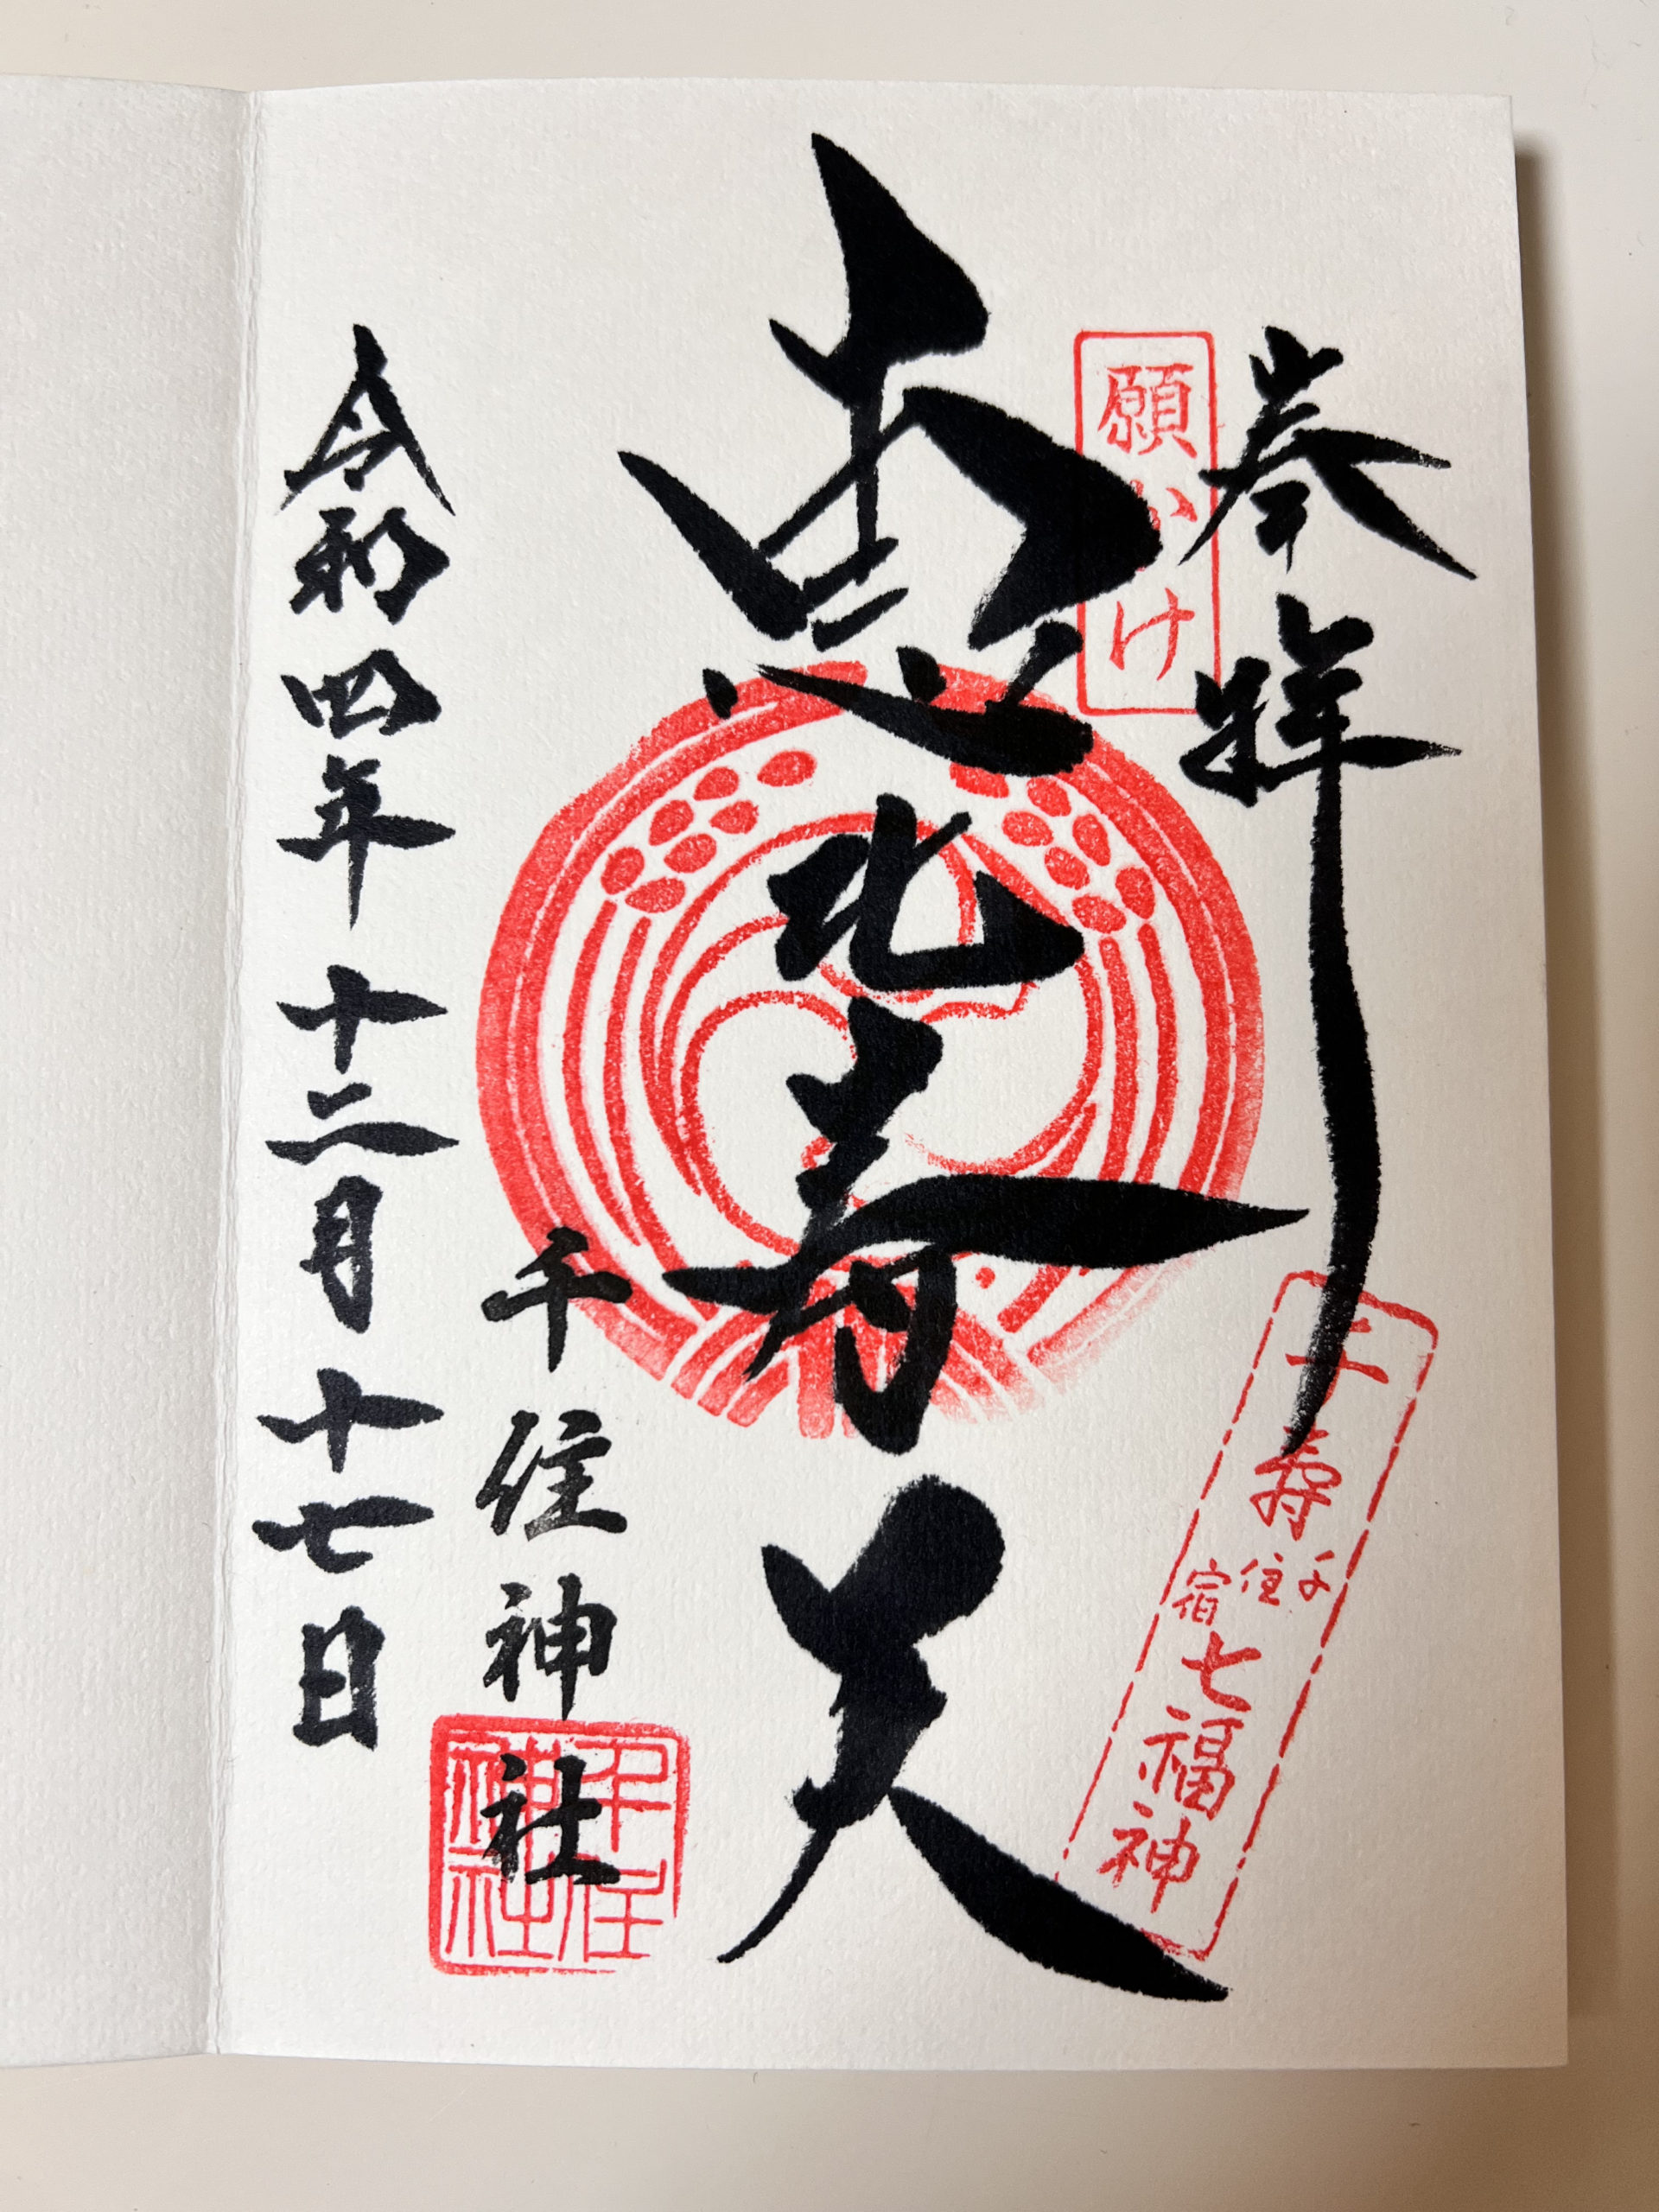 奉拝
願かけ
千寿
千住宿
七福神
恵比寿天
千住神社
千住神社
令和四年十二月十七日